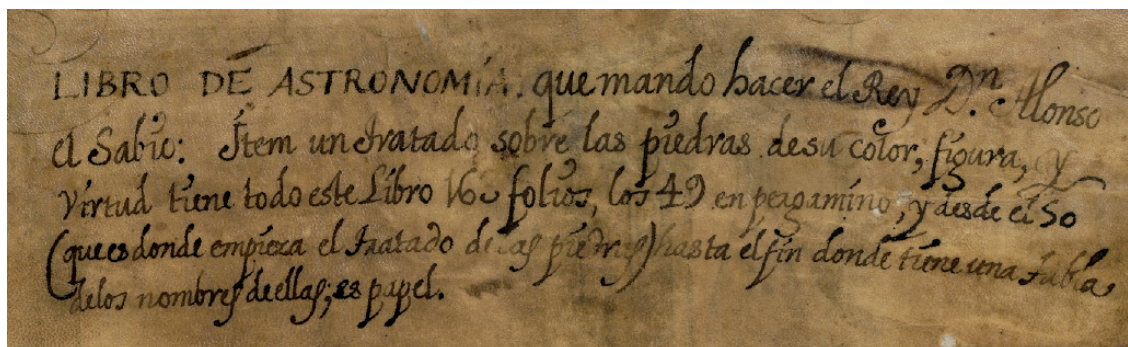 LIBRO DE ASTRONOMÍA. que mando hacer el Rey D.ⁿ Alonso
el Sabio: Ítem un tratado sobre las piedras de su color, figura, y
virtud tiene todo este Libro folios, los 49 en pergamino, y desde el 50
(que es donde empieza el tratado de las piedras) hasta el fin donde tiene una tabla
de los nombres de ellas; es papel.